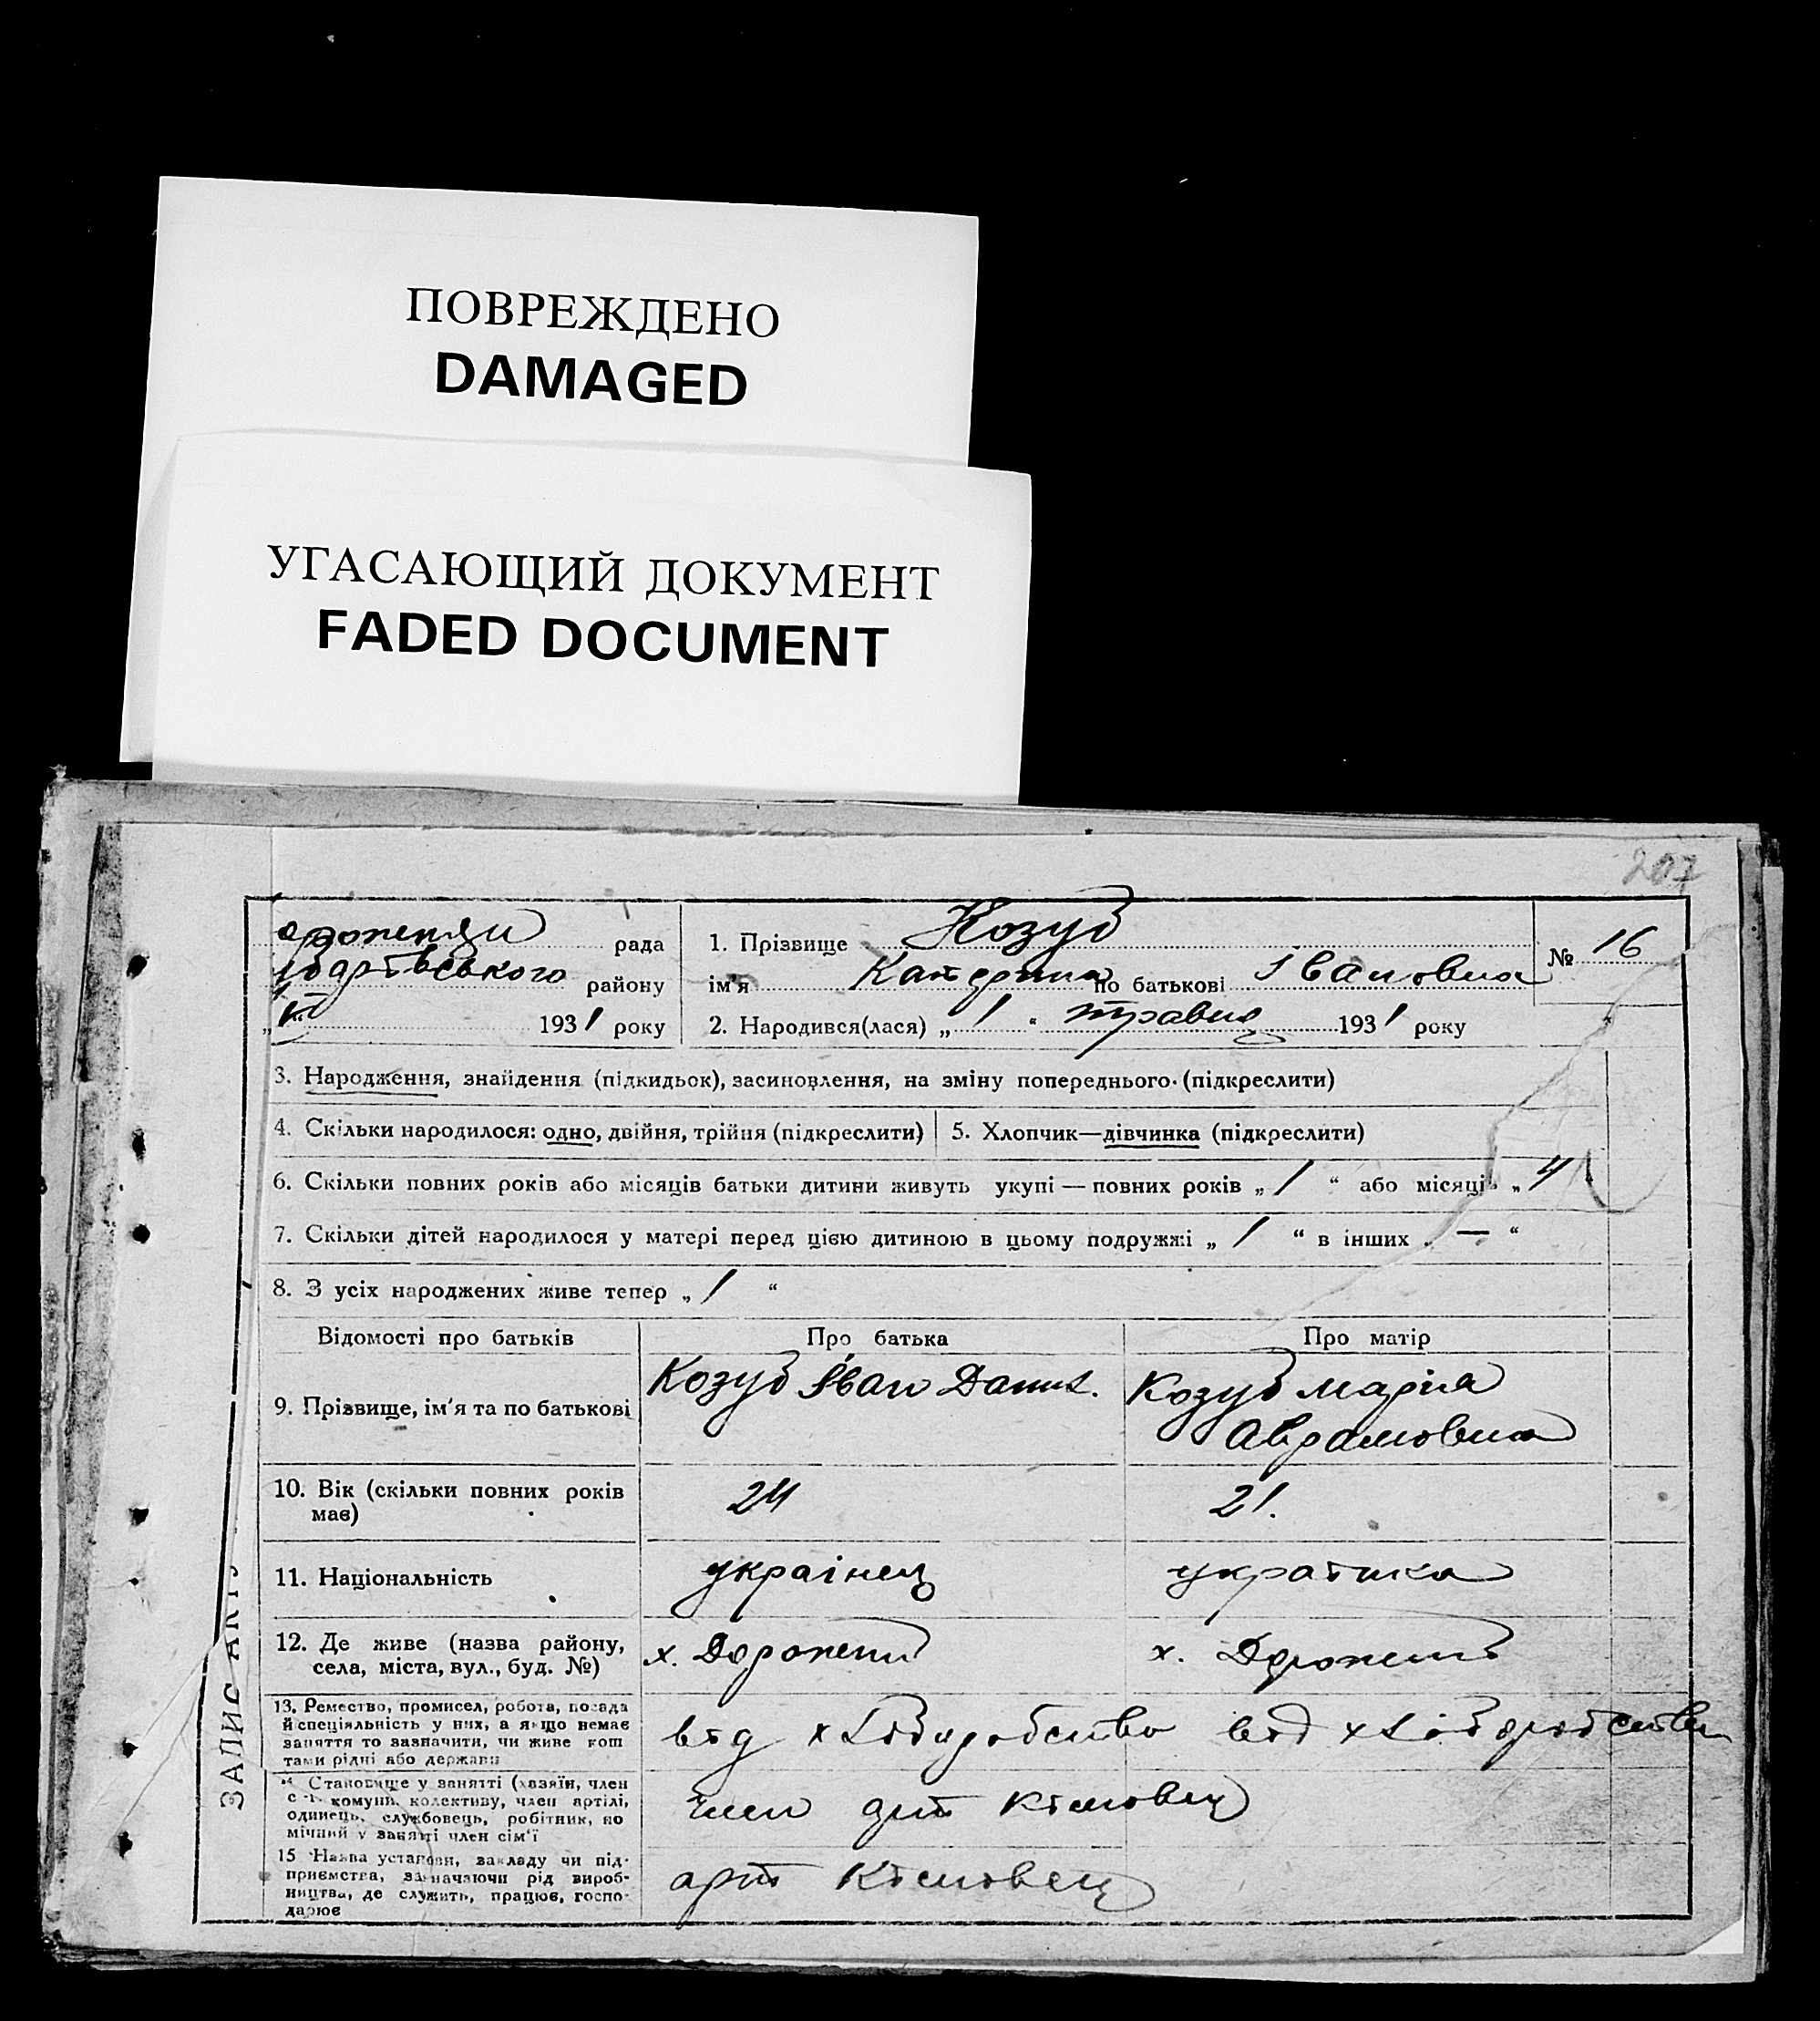 ПОВРЕЖДЕНО
DAMAGED
УГАСАЮЩИЙ ДОКУМЕНТ
FADED DOCUMENT
207
рада
району
1931 року
1. Прізвище Козуб
ім'я Катерина по батькові Івановна
№ 16
2. Народився(лася) „ 1 “ травня 1931 року
3. Народження, знайдення (підкидьок), засиновлення, на зміну попереднього (підкреслити)
4. Скільки народилося: одно, двійня, трійня (підкреслити)
5. Хлопчик—дівчинка (підкреслити)
6. Скільки повних років або місяців батьки дитини живуть укупі — повних років „ 1 “ або місяців „ 4
7. Скільки дітей народилося у матері перед цією дитиною в цьому подружжі „ 1 “ в інших „ — “
8. З усіх народжених живе тепер „ 1 “
Відомості про батьків
Про батька
Про матір
9. Прізвище, ім'я та по батькові
Козуб Іван Данил.
Козуб Марія
Аврамовна
10. Вік (скільки повних років
має)
24
21.
11. Національність
українець
українка
12. Де живе (назва району,
села, міста, вул., буд. №)
х.
х.
13. Ремество, промисел, робота, посада
й спеціяльність у них, а якщо немає
заняття то зазначити, чи живе кош
тами рідні або держави
від хліборобство
від хліборобства
14 Становище у занятті (хазяїн, член
комуни, колективу, член артілі,
одинець, службовець, робітник, по
мічний у занятті член сім'ї
член арт
15 Назва установи, закладу чи під-
приємства, зазначаючи рід вироб-
ництва, де служить, працює, госпо-
дарює
арт
ЗАПИС АКТУ